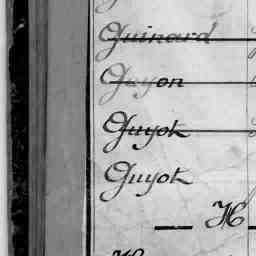 Guinard
Guyon
Guyot
Guyot
H